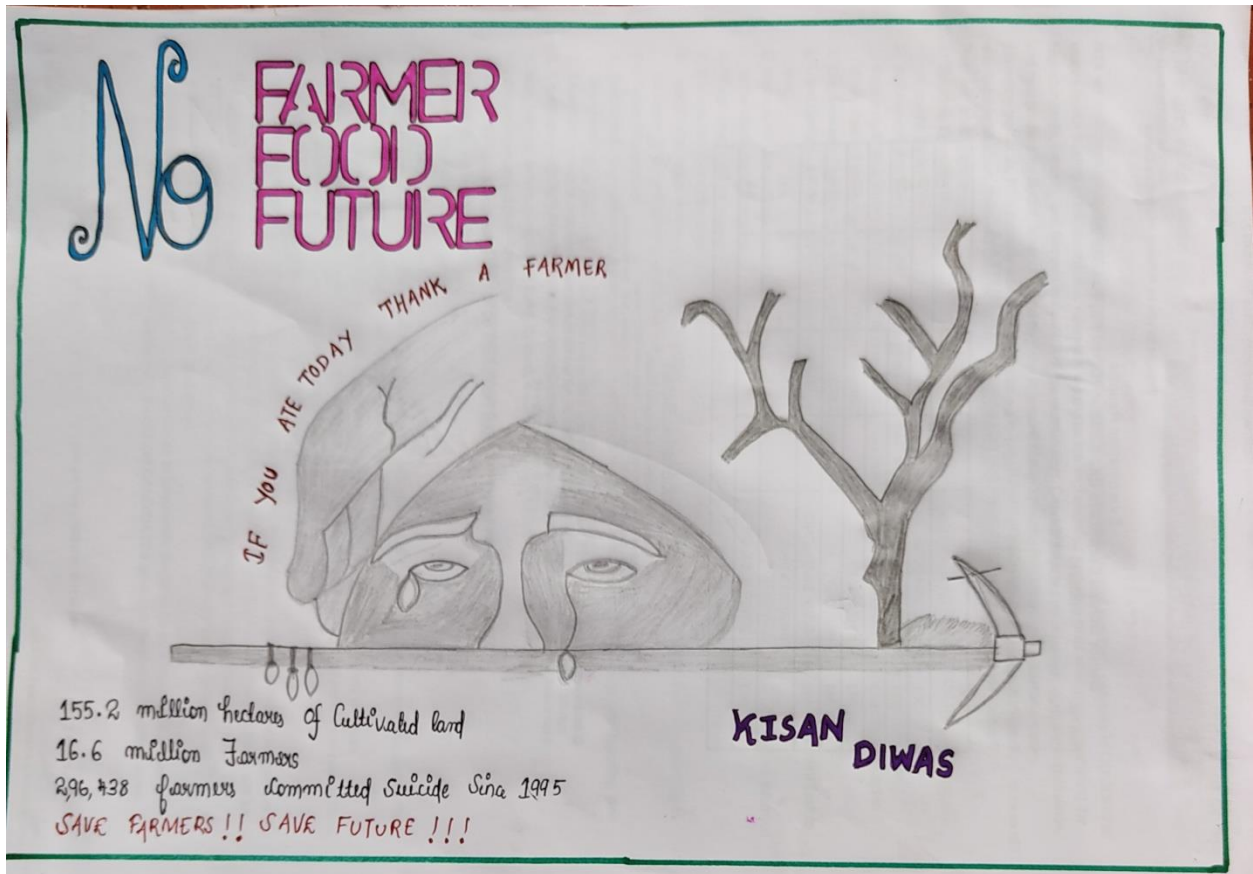 No
FARMER
FOOD
FUTURE
IF YOU ATE TODAY THANK A FARMER
155.2 million hectares of Cultivated land
16.6 million Farmers
2,96,438 farmers committed Suicide Since 1995
SAVE FARMERS!! SAVE FUTURE!!!
KISAN
DIWAS